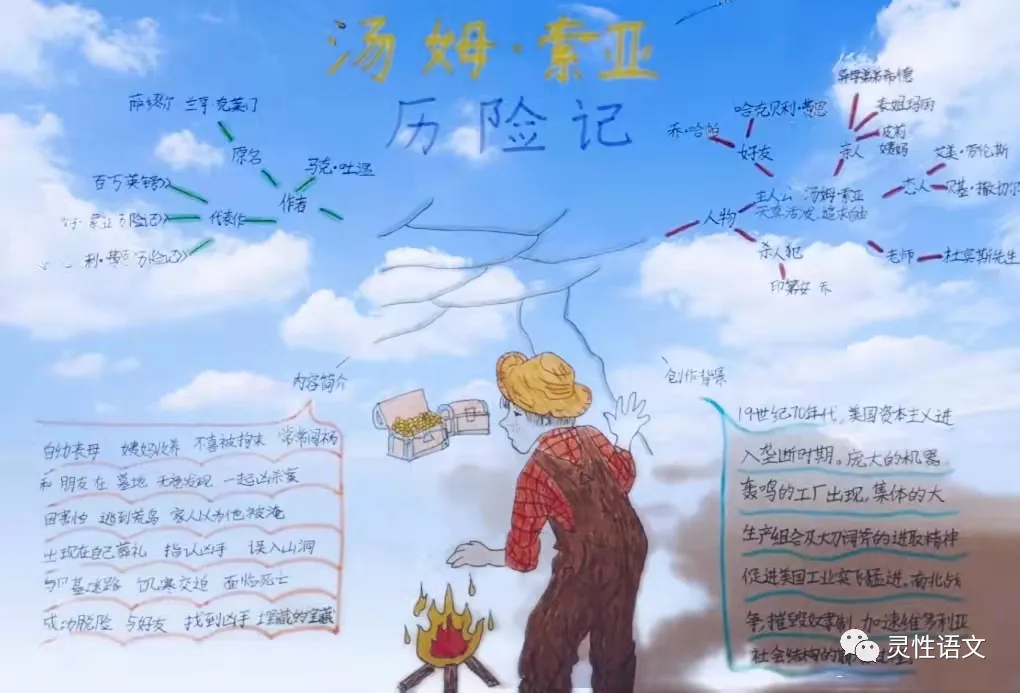 汤姆·索亚
历险记
萨缪尔 兰亨·克莱门
原名
马克·吐温
作者
百万英镑》
代表作
索亚历险记》
利·费恩历险记》
哈克贝利·费恩
乔·哈帕
好友
亲人
表姐玛丽
波莉
姨妈
艾美·劳伦斯
恋人
贝基·撒切尔
主人公 汤姆·索亚
天真活泼、追求自由
人物
杀人犯
印第安
老师
杜宾斯先生
内容简介
自幼丧母 姨妈收养 不喜被拘束 常常闯祸
和朋友在 墓地 无意发现 一起凶杀案
因害怕 逃到荒岛 家人以为他被淹
出现在自己葬礼 指认凶手 误入山洞
与贝基迷路 饥寒交迫 面临死亡
成功脱险 与好友 找到凶手埋藏的宝藏
创作背景
19世纪70年代,美国资本主义进
入垄断时期。庞大的机器
轰鸣的工厂出现,集体的大
生产组合及大刀阔斧的进取精神
促进美国工业突飞猛进。南北战
争摧毁奴隶制,加速维多利亚
社会结构的
灵性语文